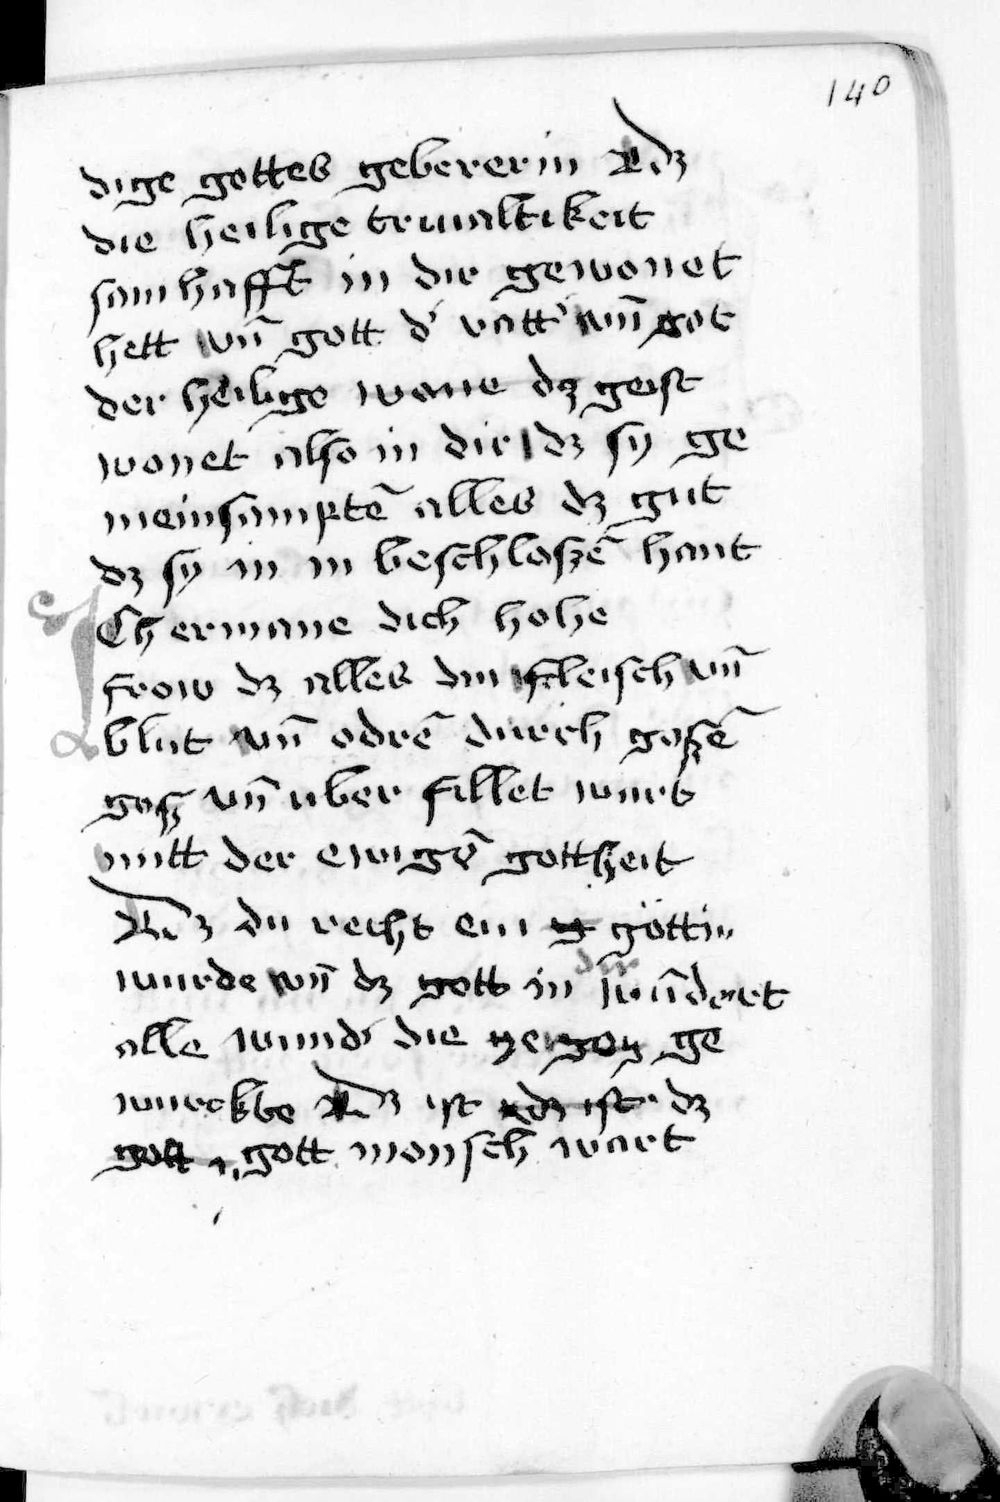 140
dige gottes gebererin Dz
die heilige triualtikeit
samhafft in dir gewonet
hett vn̄ gott d' vatt' vn̄ got
der heilige wone dz geist
wonet also in dir dz sy ge
meinsamptē alles dz gut
dz sy in in beschloszē hant
ICh ermane dich hohe
frow dz alles din fleisch vn̄
blut vn̄ odrē durch goszē
gosz vn̄ uber fillet wart
mitt der ewigē gottheit
Dz du recht ein göttin
wurde vn̄ dz gott in dir wūdert
alle wund' die ye ge
wurckte Dz ist dz ist dz
gott gott mensch wart